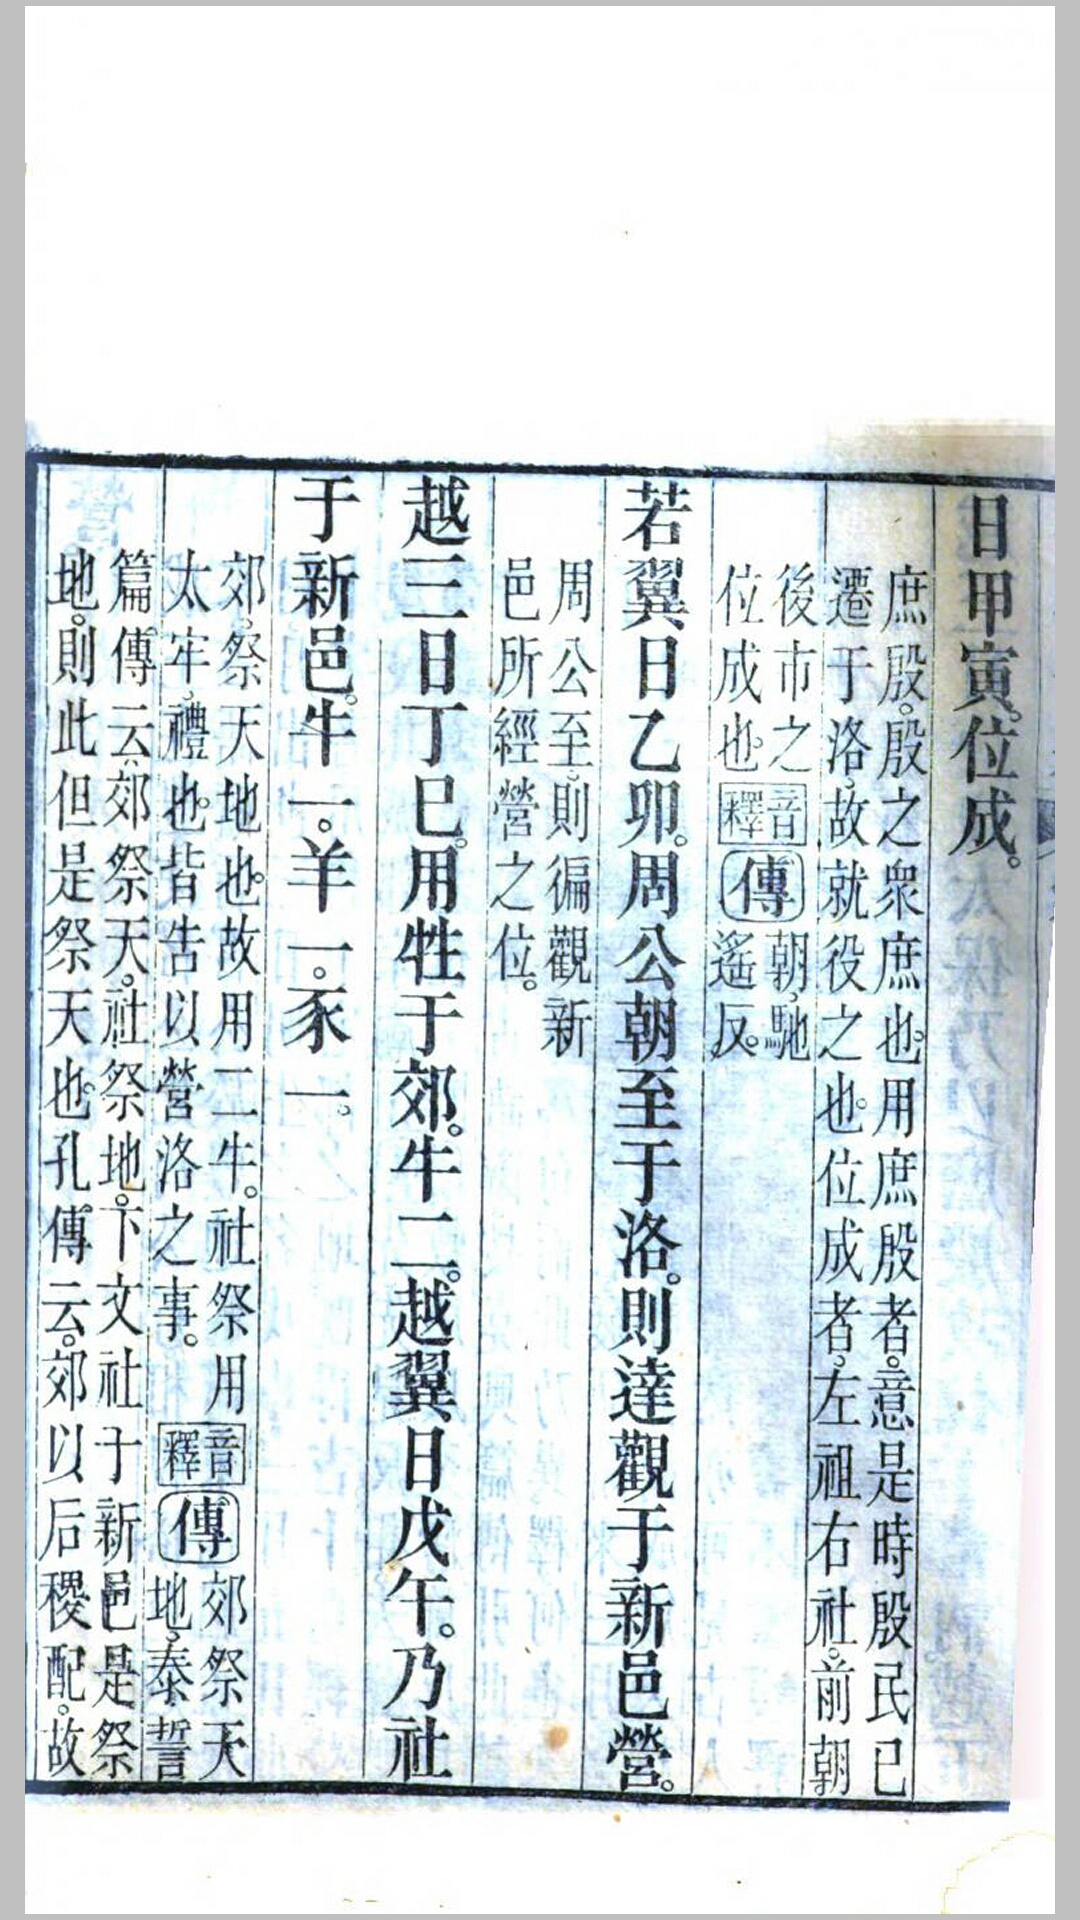 日甲寅。位成。
庶殷。殷之衆庶也。用庶殷者。意是時殷民已
遷于洛。故就役之也。位成者。左祖右社。前朝
後市之
位成也。
音釋
傳
朝。馳
遙反。
若翼日乙卯。周公朝至于洛。則達觀于新邑營。
周公至。則徧觀新
邑所經營之位。
越三日丁巳。用牲于郊。牛二。越翼日戊午。乃社
于新邑。牛一。羊一。豕一。
郊。祭天地也。故用二牛。社祭用
太牢。禮也。皆告以營洛之事。
音釋
傳
郊祭天
地。泰誓
篇傳云。郊祭天。社祭地。下文社于新邑是祭
地。則此但是祭天也。孔傳云。郊以后稷配。故